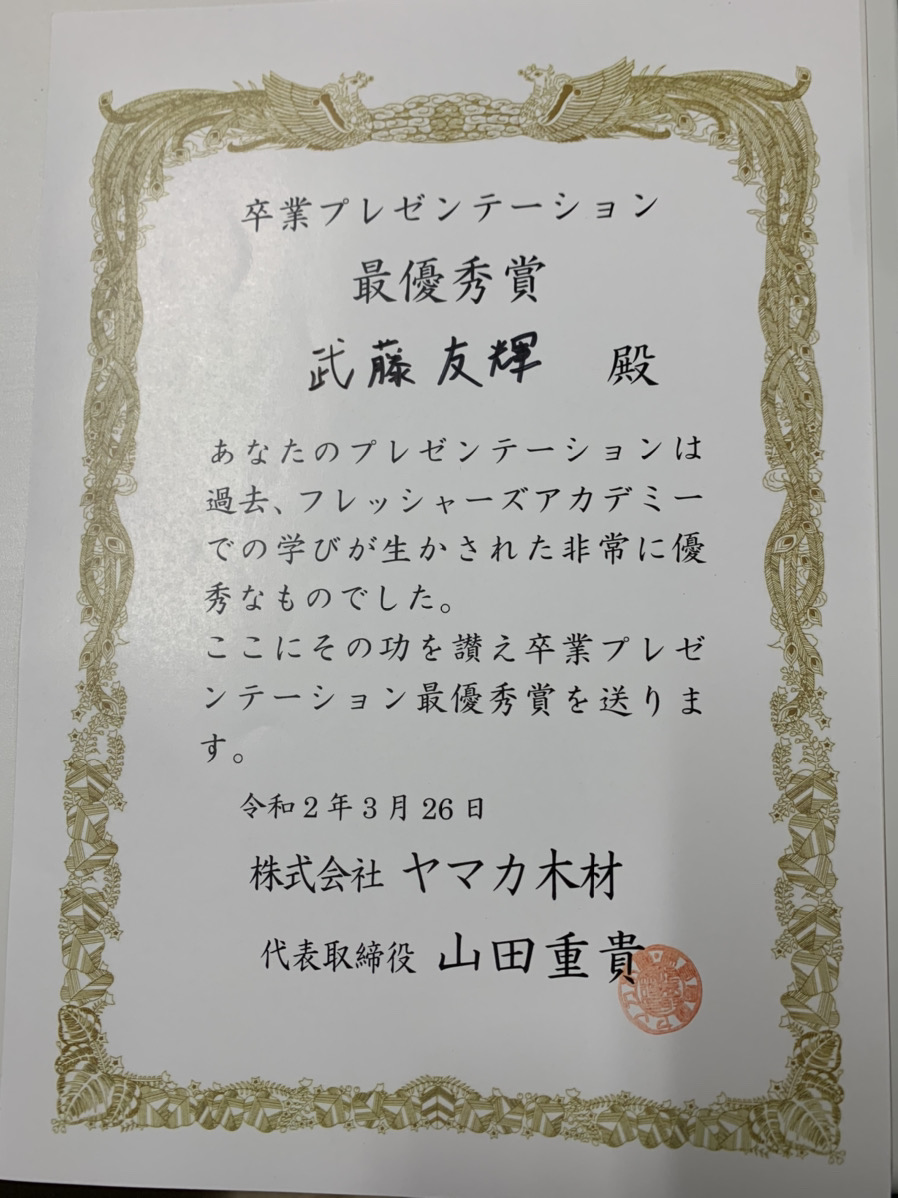 卒業プレゼンテーション
最優秀賞
武藤友輝 殿
あなたのプレゼンテーションは
過去、フレッシャーズアカデミー
での学びが生かされた非常に優
秀なものでした。
ここにその功を讃え卒業プレゼ
ンテーション最優秀賞を送りま
す。
令和2年3月26日
株式会社 ヤマカ木材
代表取締役 山田重貴